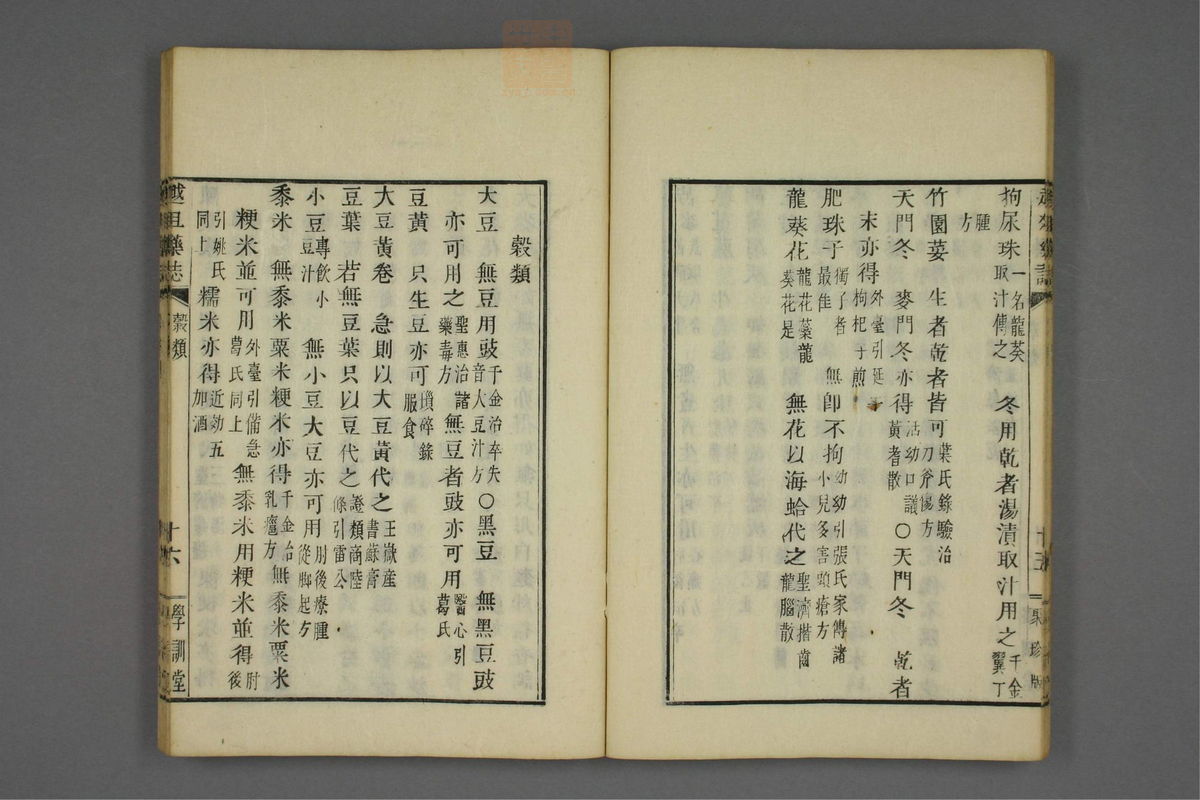 狗尿珠一名龍葵取汁傅之 冬用乾者湯漬取汁用之千金翼丁
腫方
竹園荽 生者乾者皆可葉氏錄驗治刀斧傷方
天門冬 麥門冬亦得活幼口議黃耆散〇天門冬 乾者
末亦得外臺引延 枸杞子煎
肥珠子獨子者最佳 無卽不拘幼幼引張氏家傳諸小兒多害頭瘡方
龍葵花龍花蘂龍葵花是 無花以海蛤代之聖濟揩齒龍腦散
聚珍版
穀類
大豆 無豆用豉千金治卒失音大豆汁方〇黑豆 無黑豆豉
亦可用之聖惠治諸藥毒方無豆者豉亦可用醫心引葛氏
豆黃 只生豆亦可瑣碎錄服食
大豆黃卷 急則以大豆黃代之王嶽產書蘇膏
豆葉 若無豆葉只以豆代之證類商陸條引雷公
小豆專飲小豆汁 無小豆大豆亦可用肘後療腫從脚起方
黍米 無黍米粟米粳米亦得千金治乳癰方無黍米粟米
粳米並可用外臺引備急葛氏同上無黍米用粳米並得肘後
引姚氏同上糯米亦得近効五加酒
藥誌 穀類 十六 學訓堂